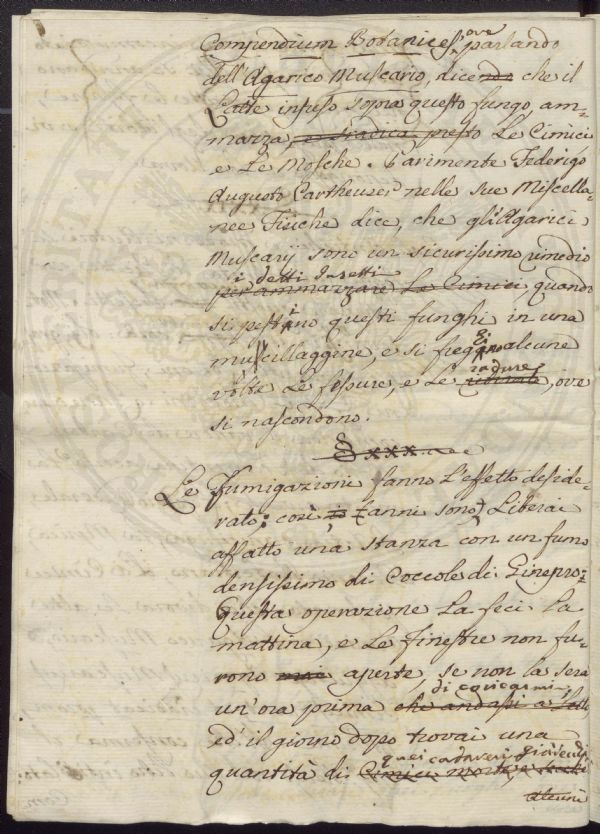 Compendium Botanices, ove parlando
dell'Agarico Muscario, dice che il
Latte infuso sopra questo fungo, am-
mazza, e stradica presto Le Cimici
e Le Mosche. Parimente Federigo
Augusto Cartheuser nelle sue Miscella-
nee Fisiche dice, che gli Agarici
Muscarij sono un sicurissimo rimedio
i detti Insetti
per ammazzare Le Cimici quando
si pestino questi funghi in una
muscillaggine, e si freghino alcune
volte Le fessure, e Le radure, ove
si nascondono.
§ xxx
Le Fumigazioni fanno L'effetto deside-
rato: così io 7 anni sono, Liberai
affatto una stanza con un fumo
densissimo di Coccole di Ginepro:
Questa operazione La feci La
mattina, e Le finestre non fu-
rono mai aperte, se non la sera
di coricarmi,
un'ora prima che andassi a Letto
ed' il giorno dopo trovai una
quei cadaveri giacenti
quantità di Cimici morte, e
alcuni